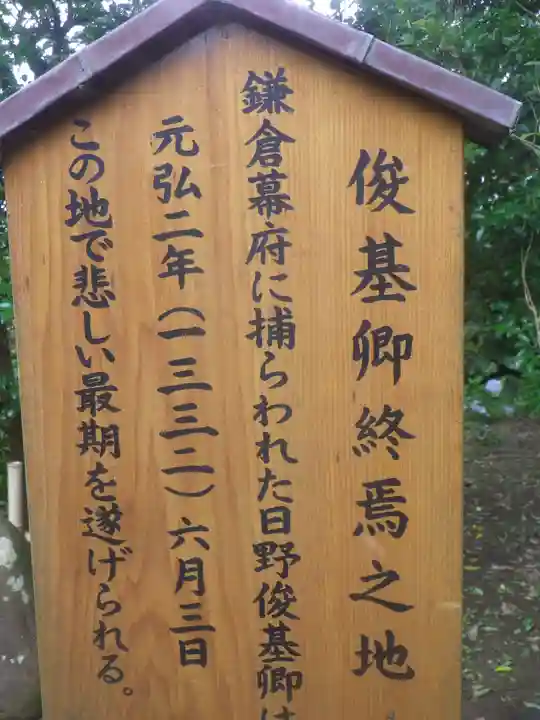 俊基卿終焉之地
鎌倉幕府に捕らわれた日野俊基卿は
元弘二年(一三三二)六月三日
この地で悲しい最期を遂げられる。